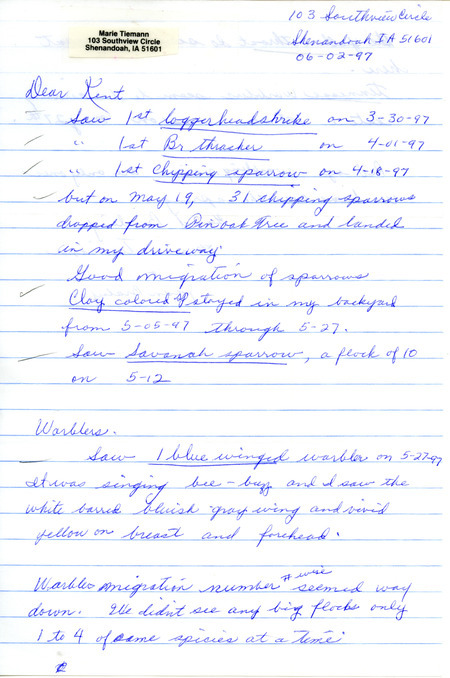 Marie Tiemann
103 Southview Circle
Shenandoah, IA 51601
103 Southview Circle
Shenandoah IA 51601
06-02-97
Dear Kent
Saw 1st loggerheadshrike on 3-30-97
" 1st Br thrasher on 4-01-97
" 1st Chipping sparrow on 4-18-97
but on May 19, 31 chipping sparrows
dropped from Pin oak Tree and landed
in my driveway.
Good migration of sparrows
Clay colored sp stayed in my backyard
from 5-05-97 through 5-27.
Saw Savanah sparrow, a flock of 10
on 5-12
Warblers.
Saw 1 blue winged warbler on 5-27-97
It was singing bee-buzz and I saw the
white barred bluish gray wing and vivid
yellow on breast and forehead.
Warbler migration number # wise seemed way
down. We didn't see any big flocks only
1 to 4 of same spicies at a time